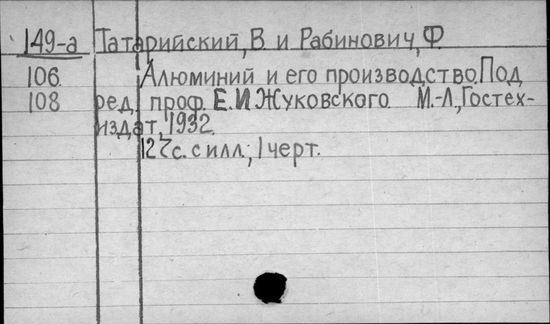 149-а Татарийский, В. и Рабинович, Ф.
106. Алюминий и его производство. Под
108 ред. проф. Е.И. Жуковского М.-Л., Гостех-
издат, 1932.
127с. с илл.; 1 черт.